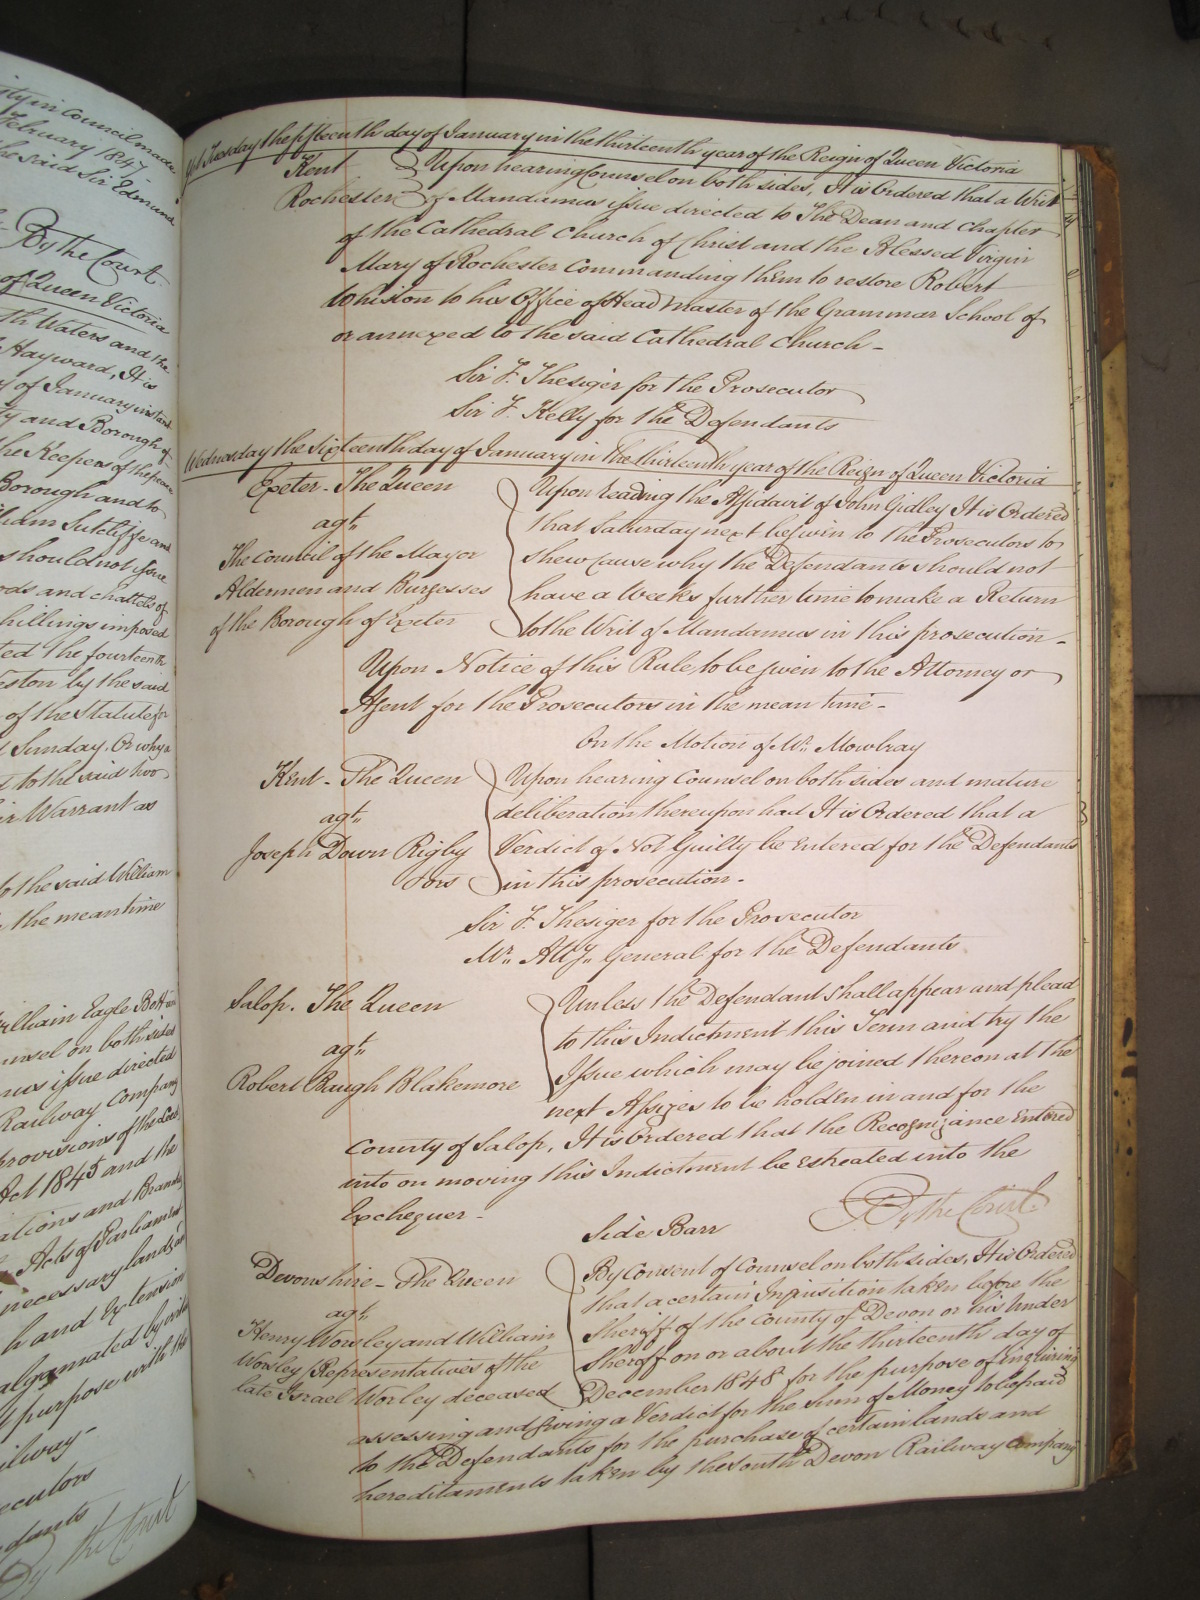 sty in Council made
February 1847
the said Sir Edmund
By the Court.
of Queen Victoria
th Waters and the
Hayward, It is
y of January instant
ty and Borough of
the Keepers of the peace
Borough and to
liam Sutcliffe and
should not issue
ods and chattels of
hillings imposed
ted the fourteenth
eston by the said
of the Statute for
Sunday. Or why a
t to the said two
ir Warrant as
to the said William
the meantime
William Eagle Bott
unsel on both sides
mus issue directed
Railway Company
provisions of the
Act 1845 and the
ations and Branches
Acts of Parliament
necessary lands
h and Extension
algamated by
purpose with the
ilway -
ecutors
dants
By the Court
Tuesday the fifteenth day of January in the thirteenth year of the Reign of Queen Victoria
Kent Upon hearing Counsel on both sides, It is Ordered that a Writ
Rochester of Mandamus issue directed to The Dean and Chapter
of the Cathedral Church of Christ and the Blessed Virgin
Mary of Rochester commanding them to restore Robert
Whiston to his Office of Head Master of the Grammar School of
or annexed to the said Cathedral Church -
Sir F. Thesiger for the Prosecutor
Sir F. Kelly for the Defendants
Wednesday the Sixteenth day of January in the thirteenth year of the Reign of Queen Victoria
Exeter - The Queen
agt.
The Council of the Mayor
Aldermen and Burgesses
of the Borough of Exeter
Upon reading the Affidavit of John Gidley It is Ordered
that Saturday next be given to the Prosecutors to
shew cause why the Defendants should not
have a Weeks further time to make a Return
to the Writ of Mandamus in this prosecution -
Upon Notice of this Rule, to be given to the Attorney or
Agent for the Prosecutors in the mean time -
On the Motion of Mr. Mowbray
Kent - The Queen
agt.
Joseph Down Rigby
Upon hearing Counsel on both sides and mature
deliberation thereupon had It is Ordered that a
Verdict of Not Guilty be Entered for the Defendants
in this prosecution -
Sir F. Thesiger for the Prosecutor
Mr. Atty. General for the Defendants
Salop. The Queen
agt.
Robert Blakemore
Unless the Defendant shall appear and plead
to this Indictment this Term and try the
Issue which may be joined thereon at the
next Assizes to be holden in and for the
County of Salop, It is Ordered that the Recognizance Entered
into on moving this Indictment be estreated into the
Exchequer -
Side Barr
By the Court.
Devonshire - The Queen
agt.
Henry Worsley and William
Worsley Representatives of the
late Israel Worsley deceased
By Consent of Counsel on both sides, It is Ordered
that a certain Inquisition taken before the
Sheriff of the County of Devon or his Under
Sheriff on or about the thirteenth day of
December 1848 for the purpose of inquiring
assessing and giving a Verdict for the Sum of Money to be paid
to the Defendants for the purchase of certain lands and
hereditaments taken by the South Devon Railway Company